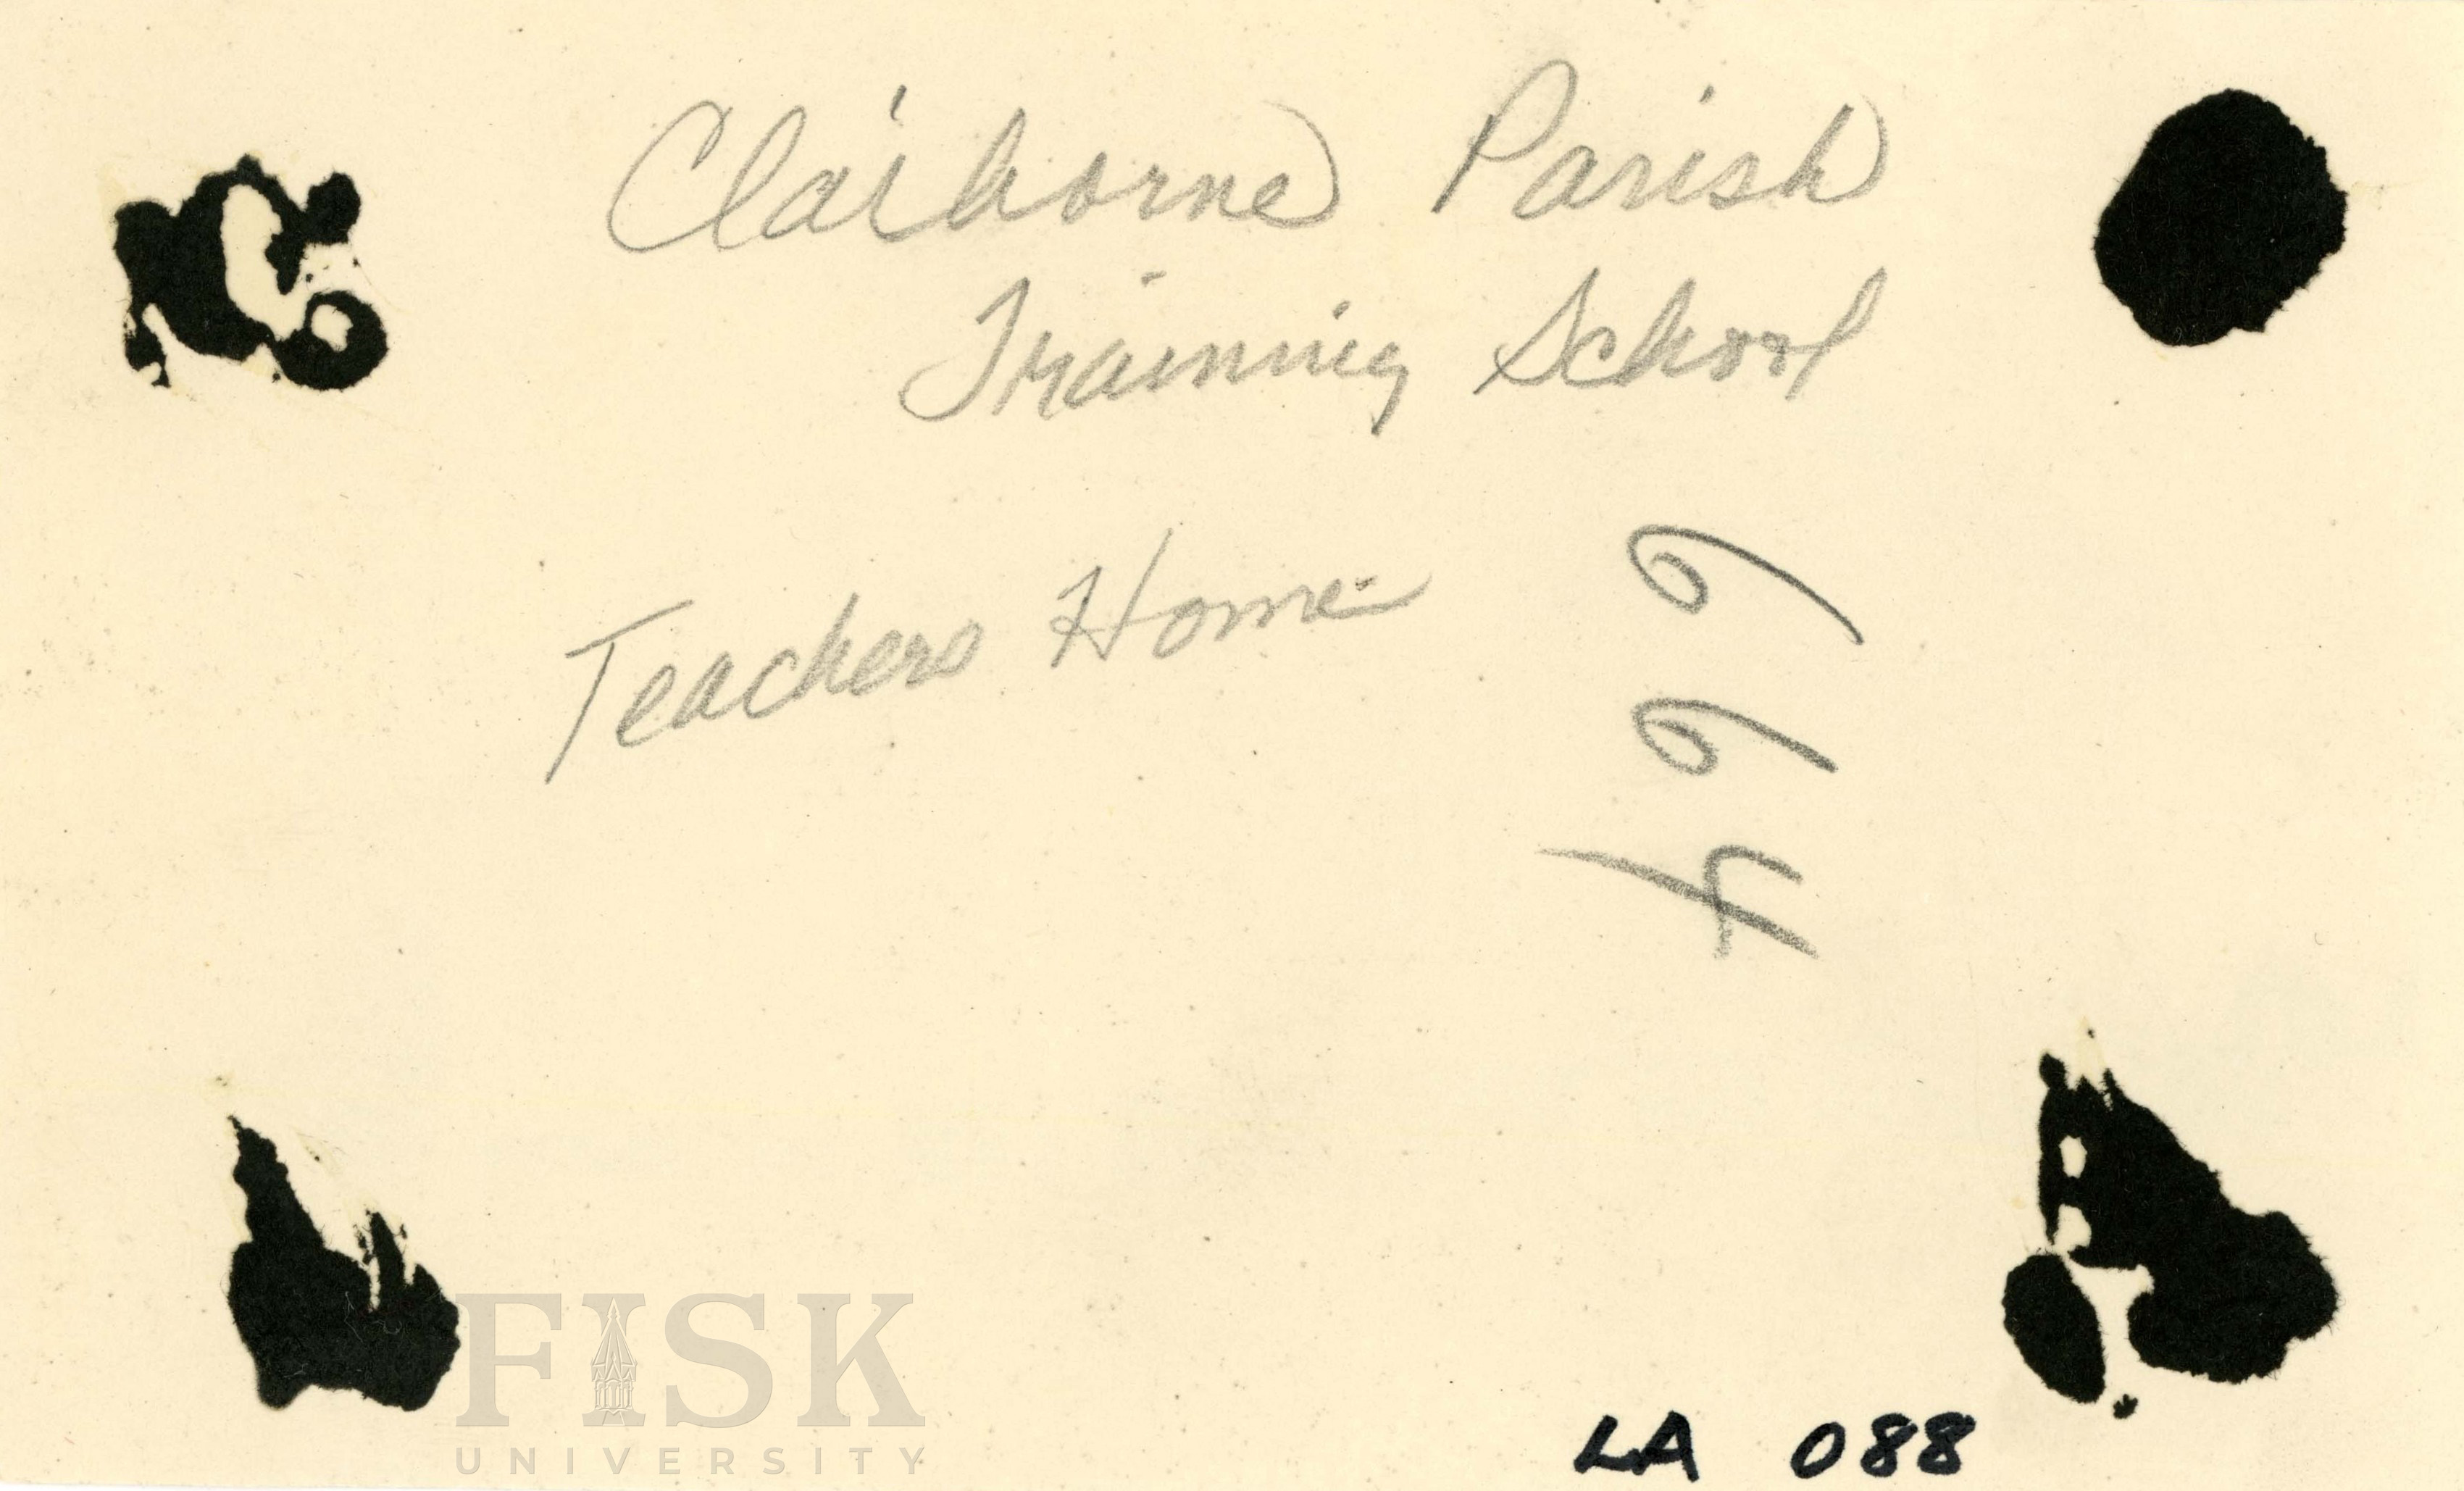 Claiborne Parish
Training School
Teachers Home
664
FISK
UNIVERSITY
LA 088